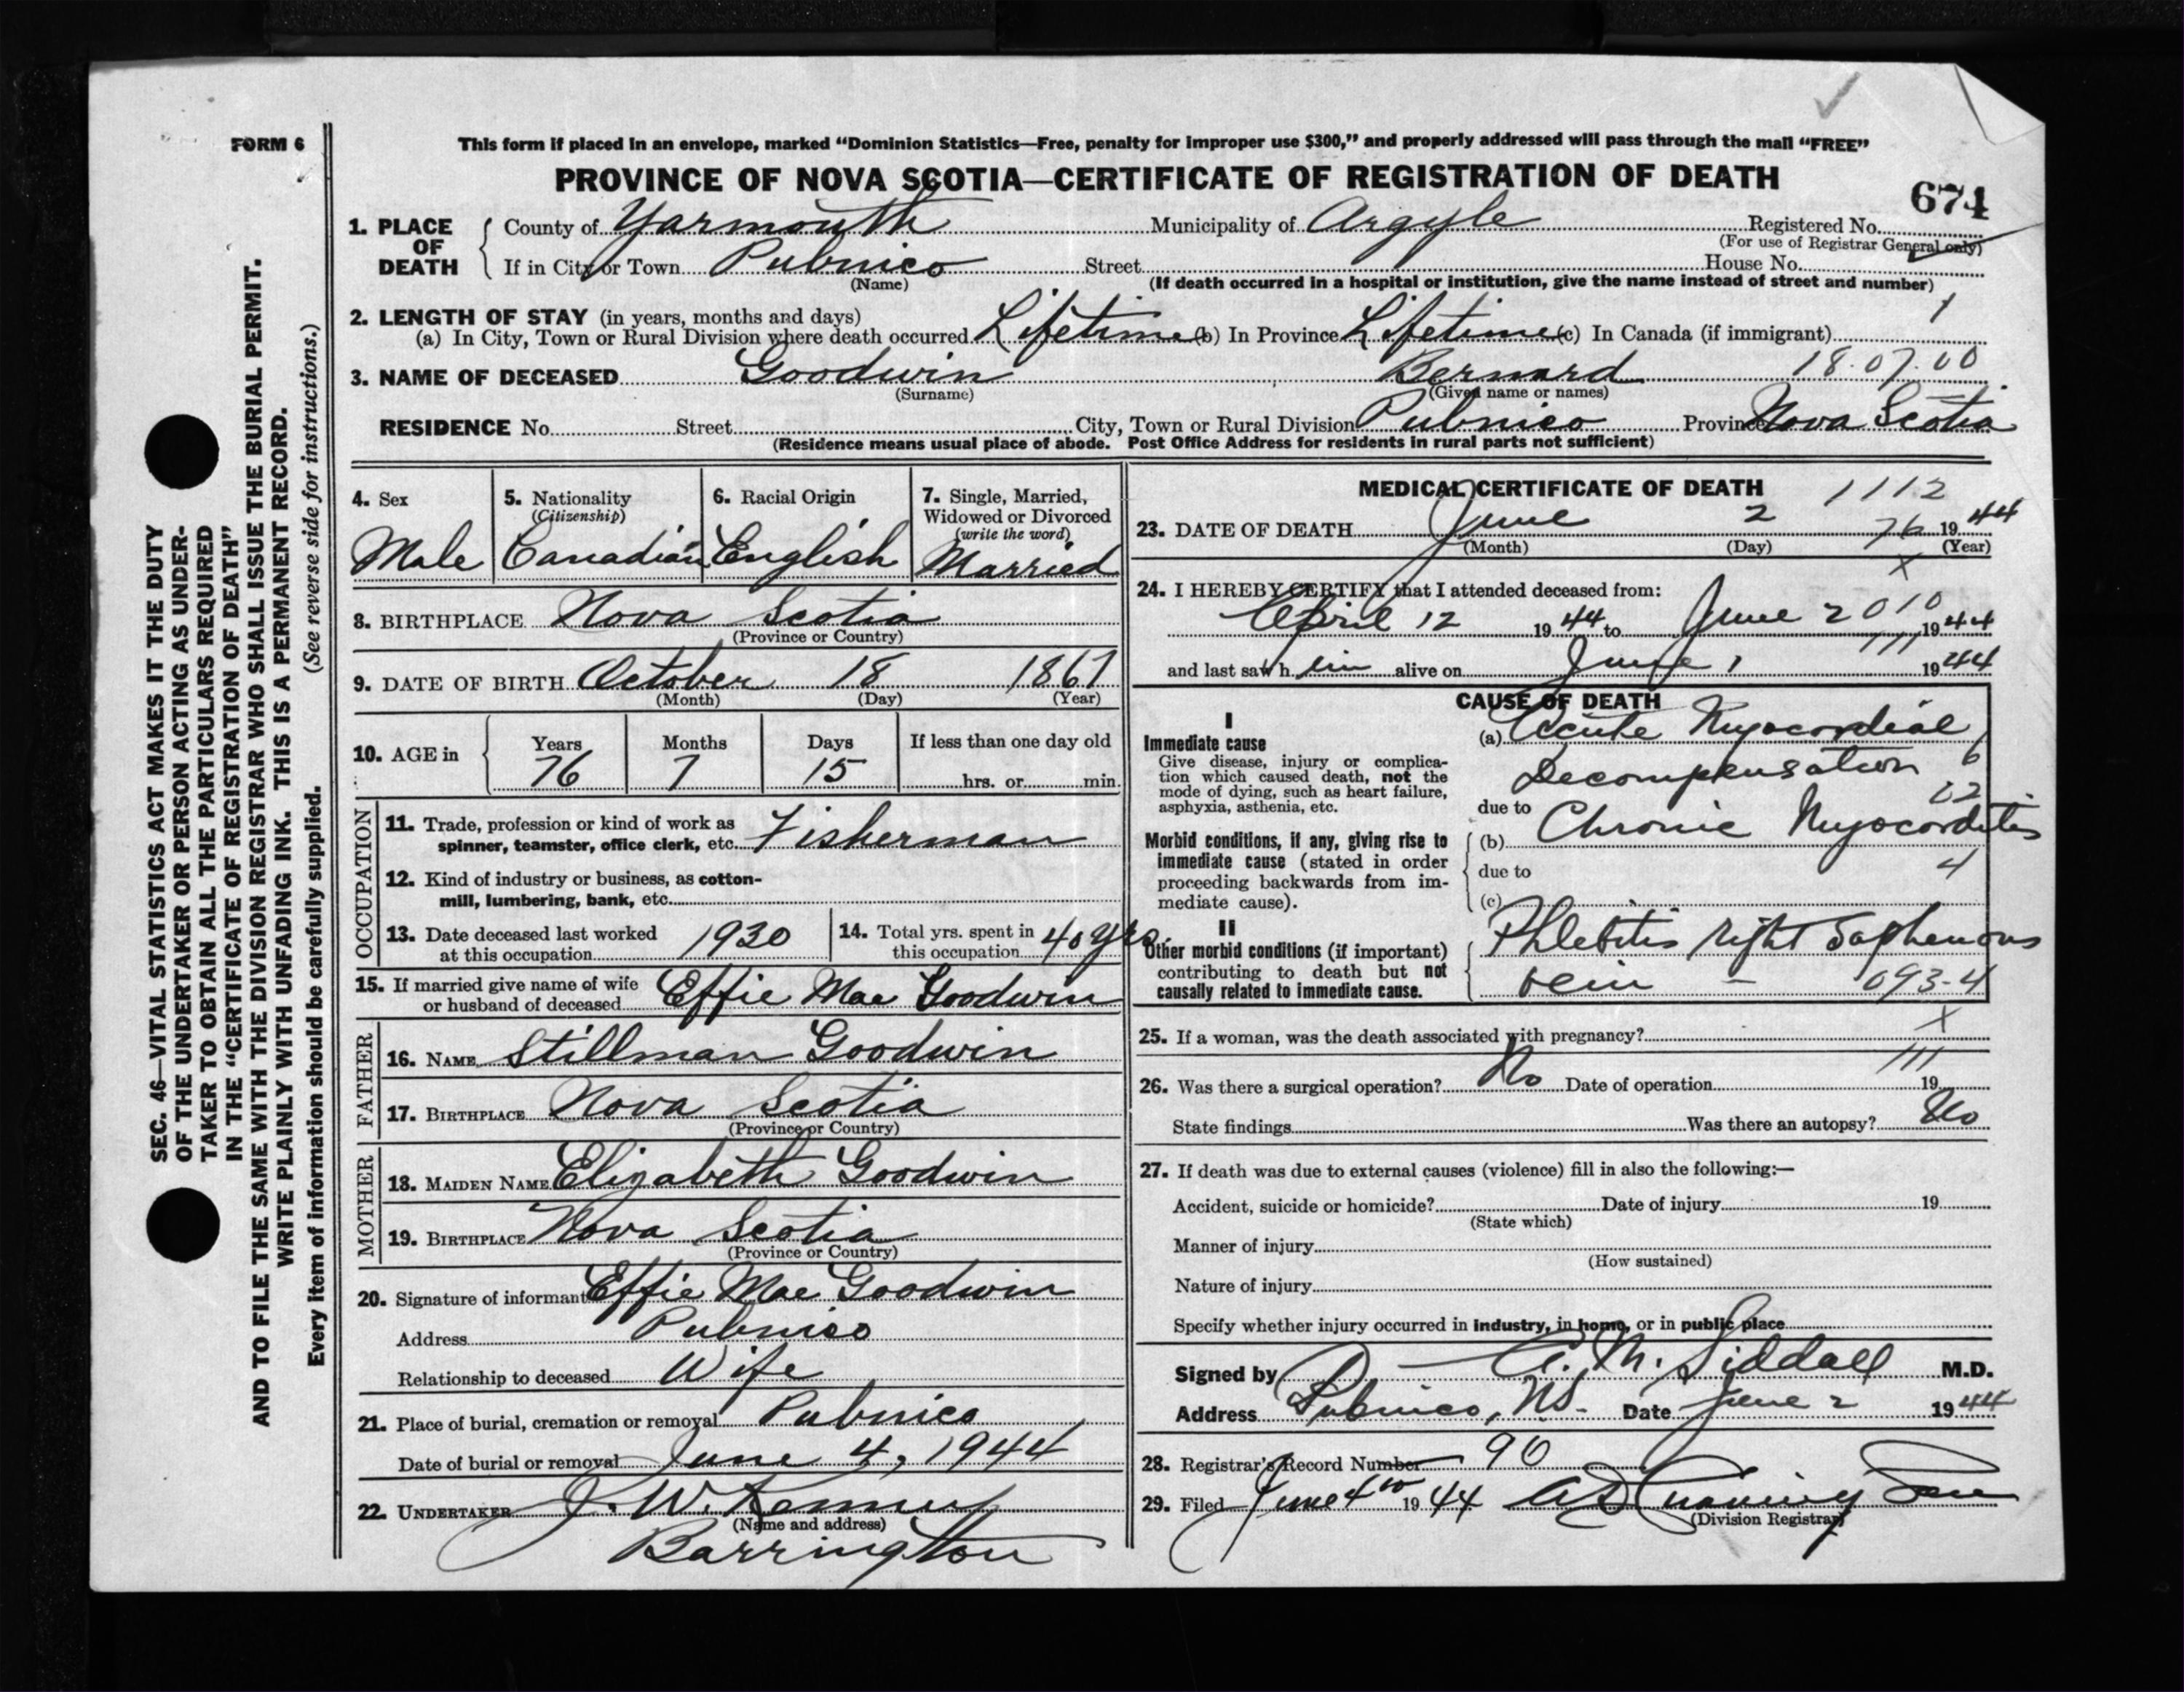 FORM 6
This form if placed in an envelope, marked "Dominion Statistics—Free, penalty for improper use $300," and properly addressed will pass through the mail "FREE"
PROVINCE OF NOVA SCOTIA—CERTIFICATE OF REGISTRATION OF DEATH
674
1. PLACE OF DEATH County of Yarmouth Municipality of Argyle Registered No.
(For use of Registrar General only)
If in City or Town Pubnico Street House No.
(Name) (If death occurred in a hospital or institution, give the name instead of street and number)
2. LENGTH OF STAY (in years, months and days)
(a) In City, Town or Rural Division where death occurred Lifetime (b) In Province Lifetime (c) In Canada (if immigrant)
3. NAME OF DECEASED Goodwin Bernard 18.07.00
(Surname) (Given name or names)
RESIDENCE No. Street City, Town or Rural Division Pubnico Province Nova Scotia
(Residence means usual place of abode. Post Office Address for residents in rural parts not sufficient)
4. Sex
Male
5. Nationality
(Citizenship)
Canadian
6. Racial Origin
English
7. Single, Married,
Widowed or Divorced
(write the word)
Married
8. BIRTHPLACE Nova Scotia
(Province or Country)
9. DATE OF BIRTH October 18 1867
(Month) (Day) (Year)
10. AGE in Years Months Days If less than one day old
76 7 15 hrs. or min.
OCCUPATION
11. Trade, profession or kind of work as
spinner, teamster, office clerk, etc. Fisherman
12. Kind of industry or business, as cotton-
mill, lumbering, bank, etc.
13. Date deceased last worked
at this occupation 1930
14. Total yrs. spent in
this occupation 40 yrs.
15. If married give name of wife
or husband of deceased Effie Mae Goodwin
FATHER
16. NAME Stillman Goodwin
17. BIRTHPLACE Nova Scotia
(Province or Country)
MOTHER
18. MAIDEN NAME Elizabeth Goodwin
19. BIRTHPLACE Nova Scotia
(Province or Country)
20. Signature of informant Effie Mae Goodwin
Address Pubnico
Relationship to deceased Wife
21. Place of burial, cremation or removal Pubnico
Date of burial or removal June 4, 1944
22. UNDERTAKER J. W. Kenney
(Name and address)
Barrington
MEDICAL CERTIFICATE OF DEATH 1112
23. DATE OF DEATH June 2 76 1944
(Month) (Day) (Year)
24. I HEREBY CERTIFY that I attended deceased from:
April 12 1944 to June 2 010 1944
and last saw h im alive on June 1 111 1944
CAUSE OF DEATH
I
Immediate cause
Give disease, injury or complica-
tion which caused death, not the
mode of dying, such as heart failure,
asphyxia, asthenia, etc.
(a) Acute Myocardial
Decompensation 6
due to
Morbid conditions, if any, giving rise to
immediate cause (stated in order
proceeding backwards from im-
mediate cause).
(b) Chronic Myocarditis
due to 4
(c)
II
Other morbid conditions (if important)
contributing to death but not
causally related to immediate cause.
Phlebitis right Saphenous
vein — 093-4
25. If a woman, was the death associated with pregnancy? X
26. Was there a surgical operation? No Date of operation 111 19
State findings Was there an autopsy? No
27. If death was due to external causes (violence) fill in also the following:—
Accident, suicide or homicide? Date of injury 19
(State which)
Manner of injury
(How sustained)
Nature of injury
Specify whether injury occurred in industry, in home, or in public place
Signed by A. M. Siddall M.D.
Address Pubnico, NS. Date June 2 1944
28. Registrar's Record Number 90
29. Filed June 4th 1944
(Division Registrar)
SEC. 46—VITAL STATISTICS ACT MAKES IT THE DUTY
OF THE UNDERTAKER OR PERSON ACTING AS UNDER-
TAKER TO OBTAIN ALL THE PARTICULARS REQUIRED
IN THE "CERTIFICATE OF REGISTRATION OF DEATH"
AND TO FILE THE SAME WITH THE DIVISION REGISTRAR WHO SHALL ISSUE THE BURIAL PERMIT.
WRITE PLAINLY WITH UNFADING INK. THIS IS A PERMANENT RECORD.
Every item of information should be carefully supplied. (See reverse side for instructions.)